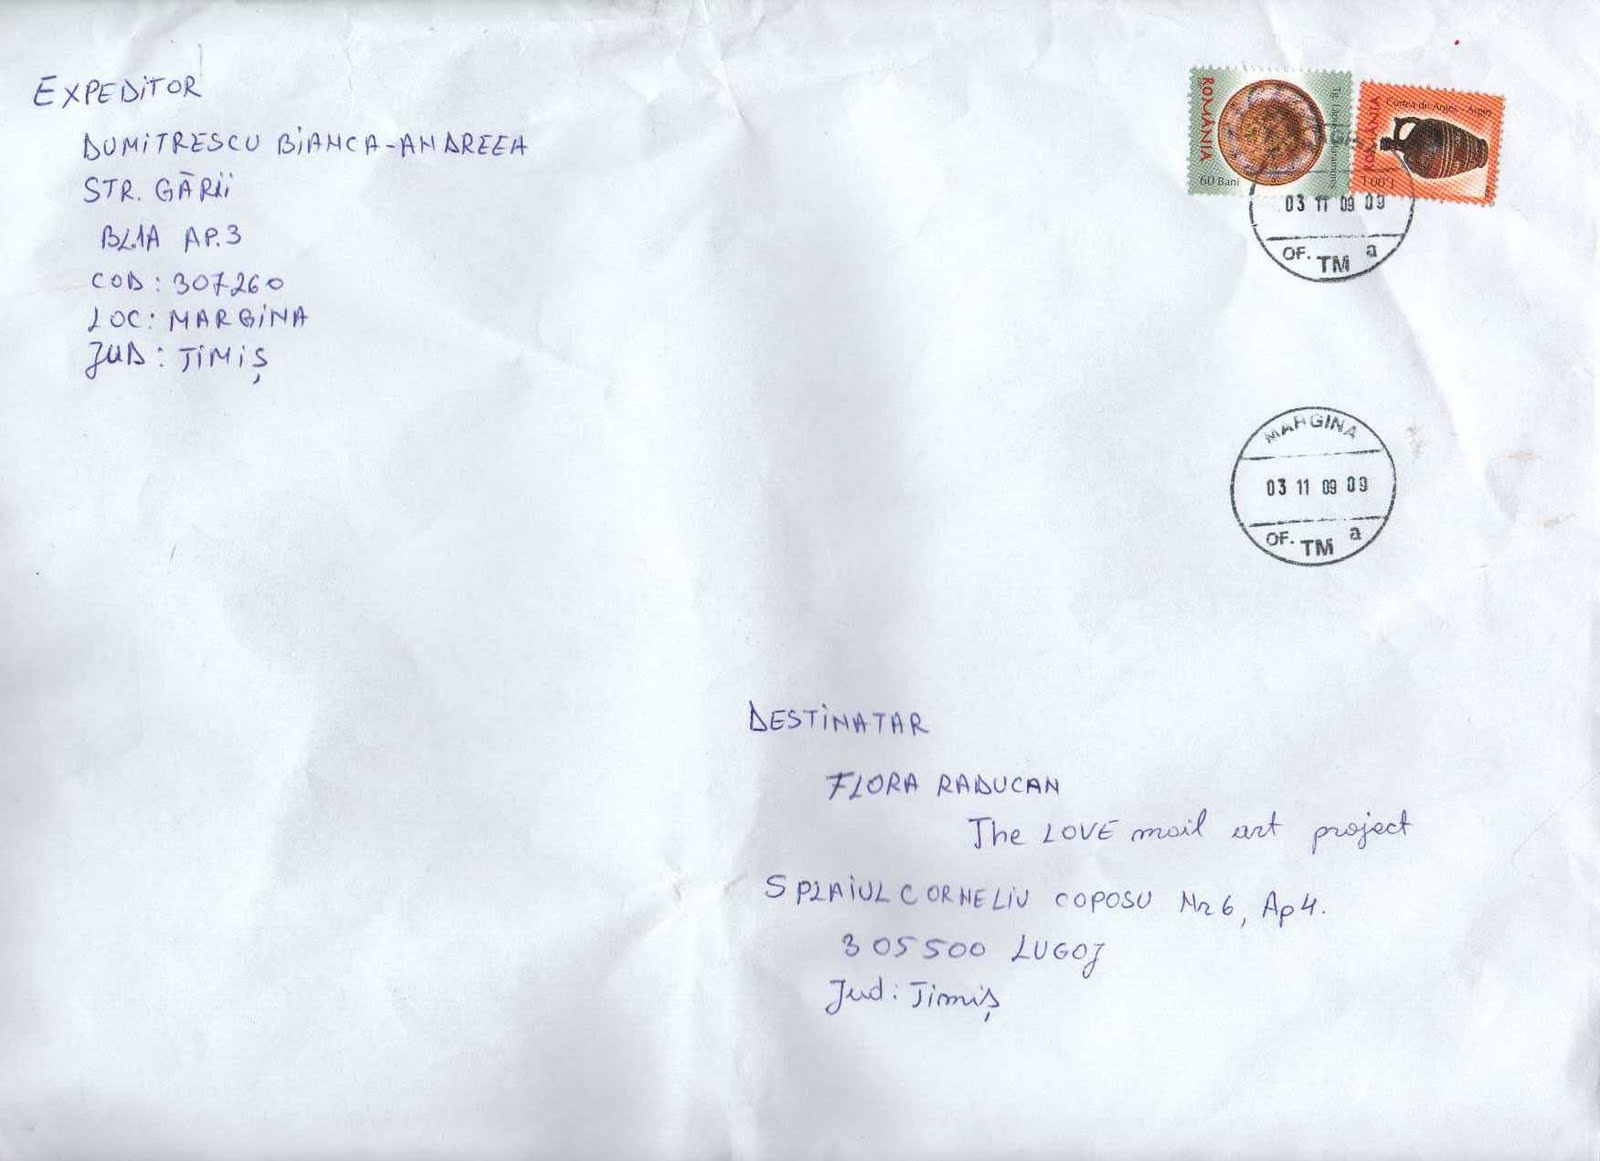 EXPEDITOR
DUMITRESCU BIANCA-ANDREEA
STR. GĂRII
BL.1A AP.3
COD: 307260
LOC: MARGINA
JUD: TIMIȘ
ROMÂNIA
60 Bani
ROMÂNIA
Curtea de Argeș - Argeș
03 11 09 09
OF. TM a
MARGINA
03 11 09 09
OF. TM a
DESTINATAR
FLORA RADUCAN
The LOVE mail art project
SPLAIUL CORNELIU COPOSU Nr 6, Ap 4.
305500 LUGOJ
Jud: Timiș